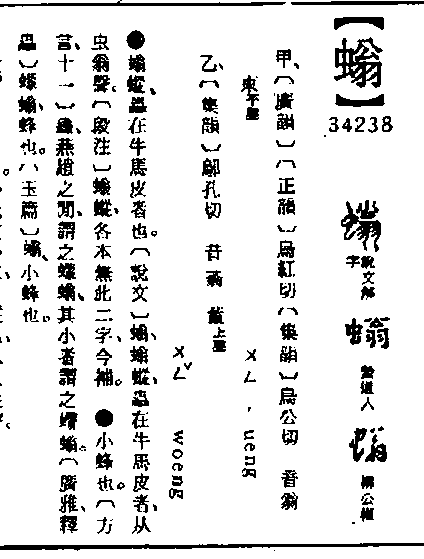 【螉】
34238
說文解字
螉
營道人
螉
柳公權
甲、〔廣韻〕〔正韻〕烏紅切〔集韻〕烏公切 音翁
東平聲 ㄨㄥ, ueng
乙、〔集韻〕鄔孔切 音蓊 董上聲
ㄨㄥˇ woeng
●螉䗥、蟲在牛馬皮者也。〔說文〕螉、螉䗥、蟲在牛馬皮者、从
虫翁聲。〔段注〕螉䗥、各本無此二字、今補。 ●小蜂也。〔方
言、十一〕蠭、燕趙之閒、謂之蠓螉、其小者謂之蠮螉。〔廣雅、釋
蟲〕蠓螉、蜂也。〔玉篇〕螉、小蜂也。